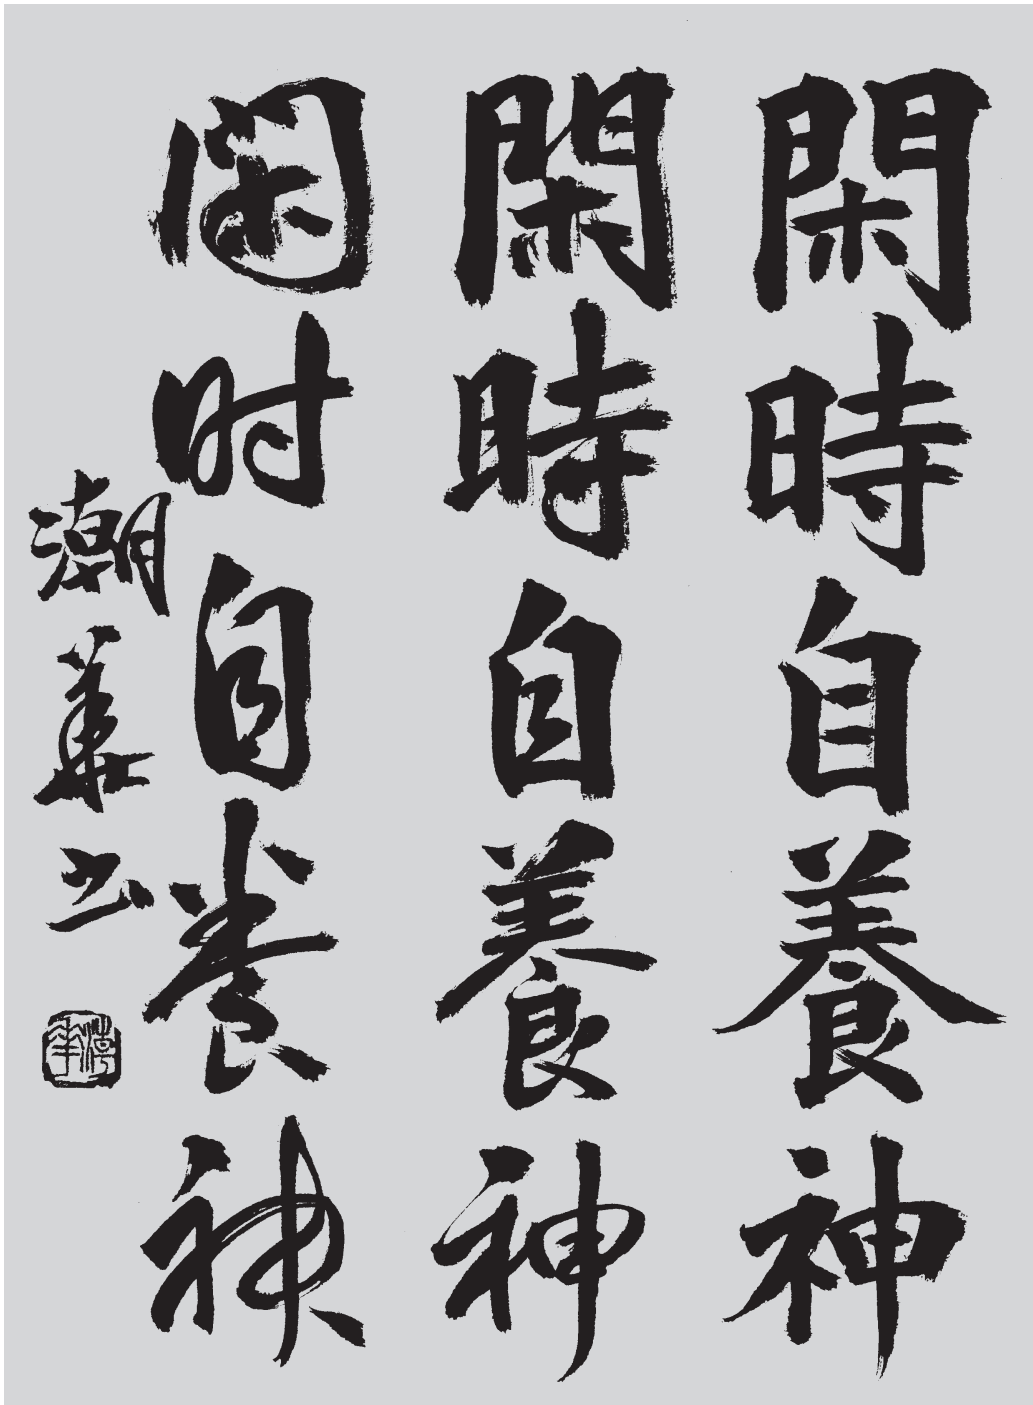 閑時自養神
閑時自養神
閑时自养神
潮華书